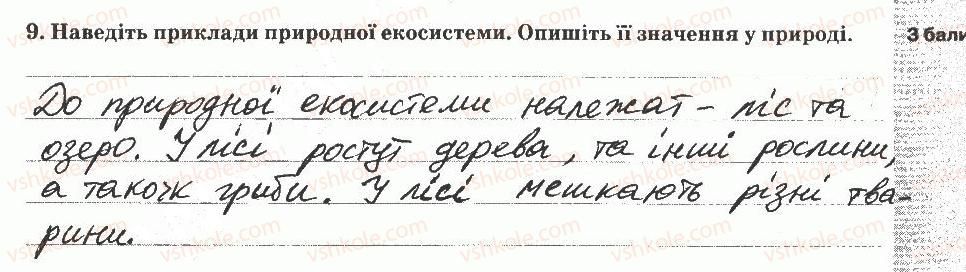 9. Наведіть приклади природної екосистеми. Опишіть її значення у природі. 3 бали
До природної екосистеми належат - ліс та
озеро. У лісі ростут дерева, та інші рослини,
а також гриби. У лісі мешкають різні тва-
рини.